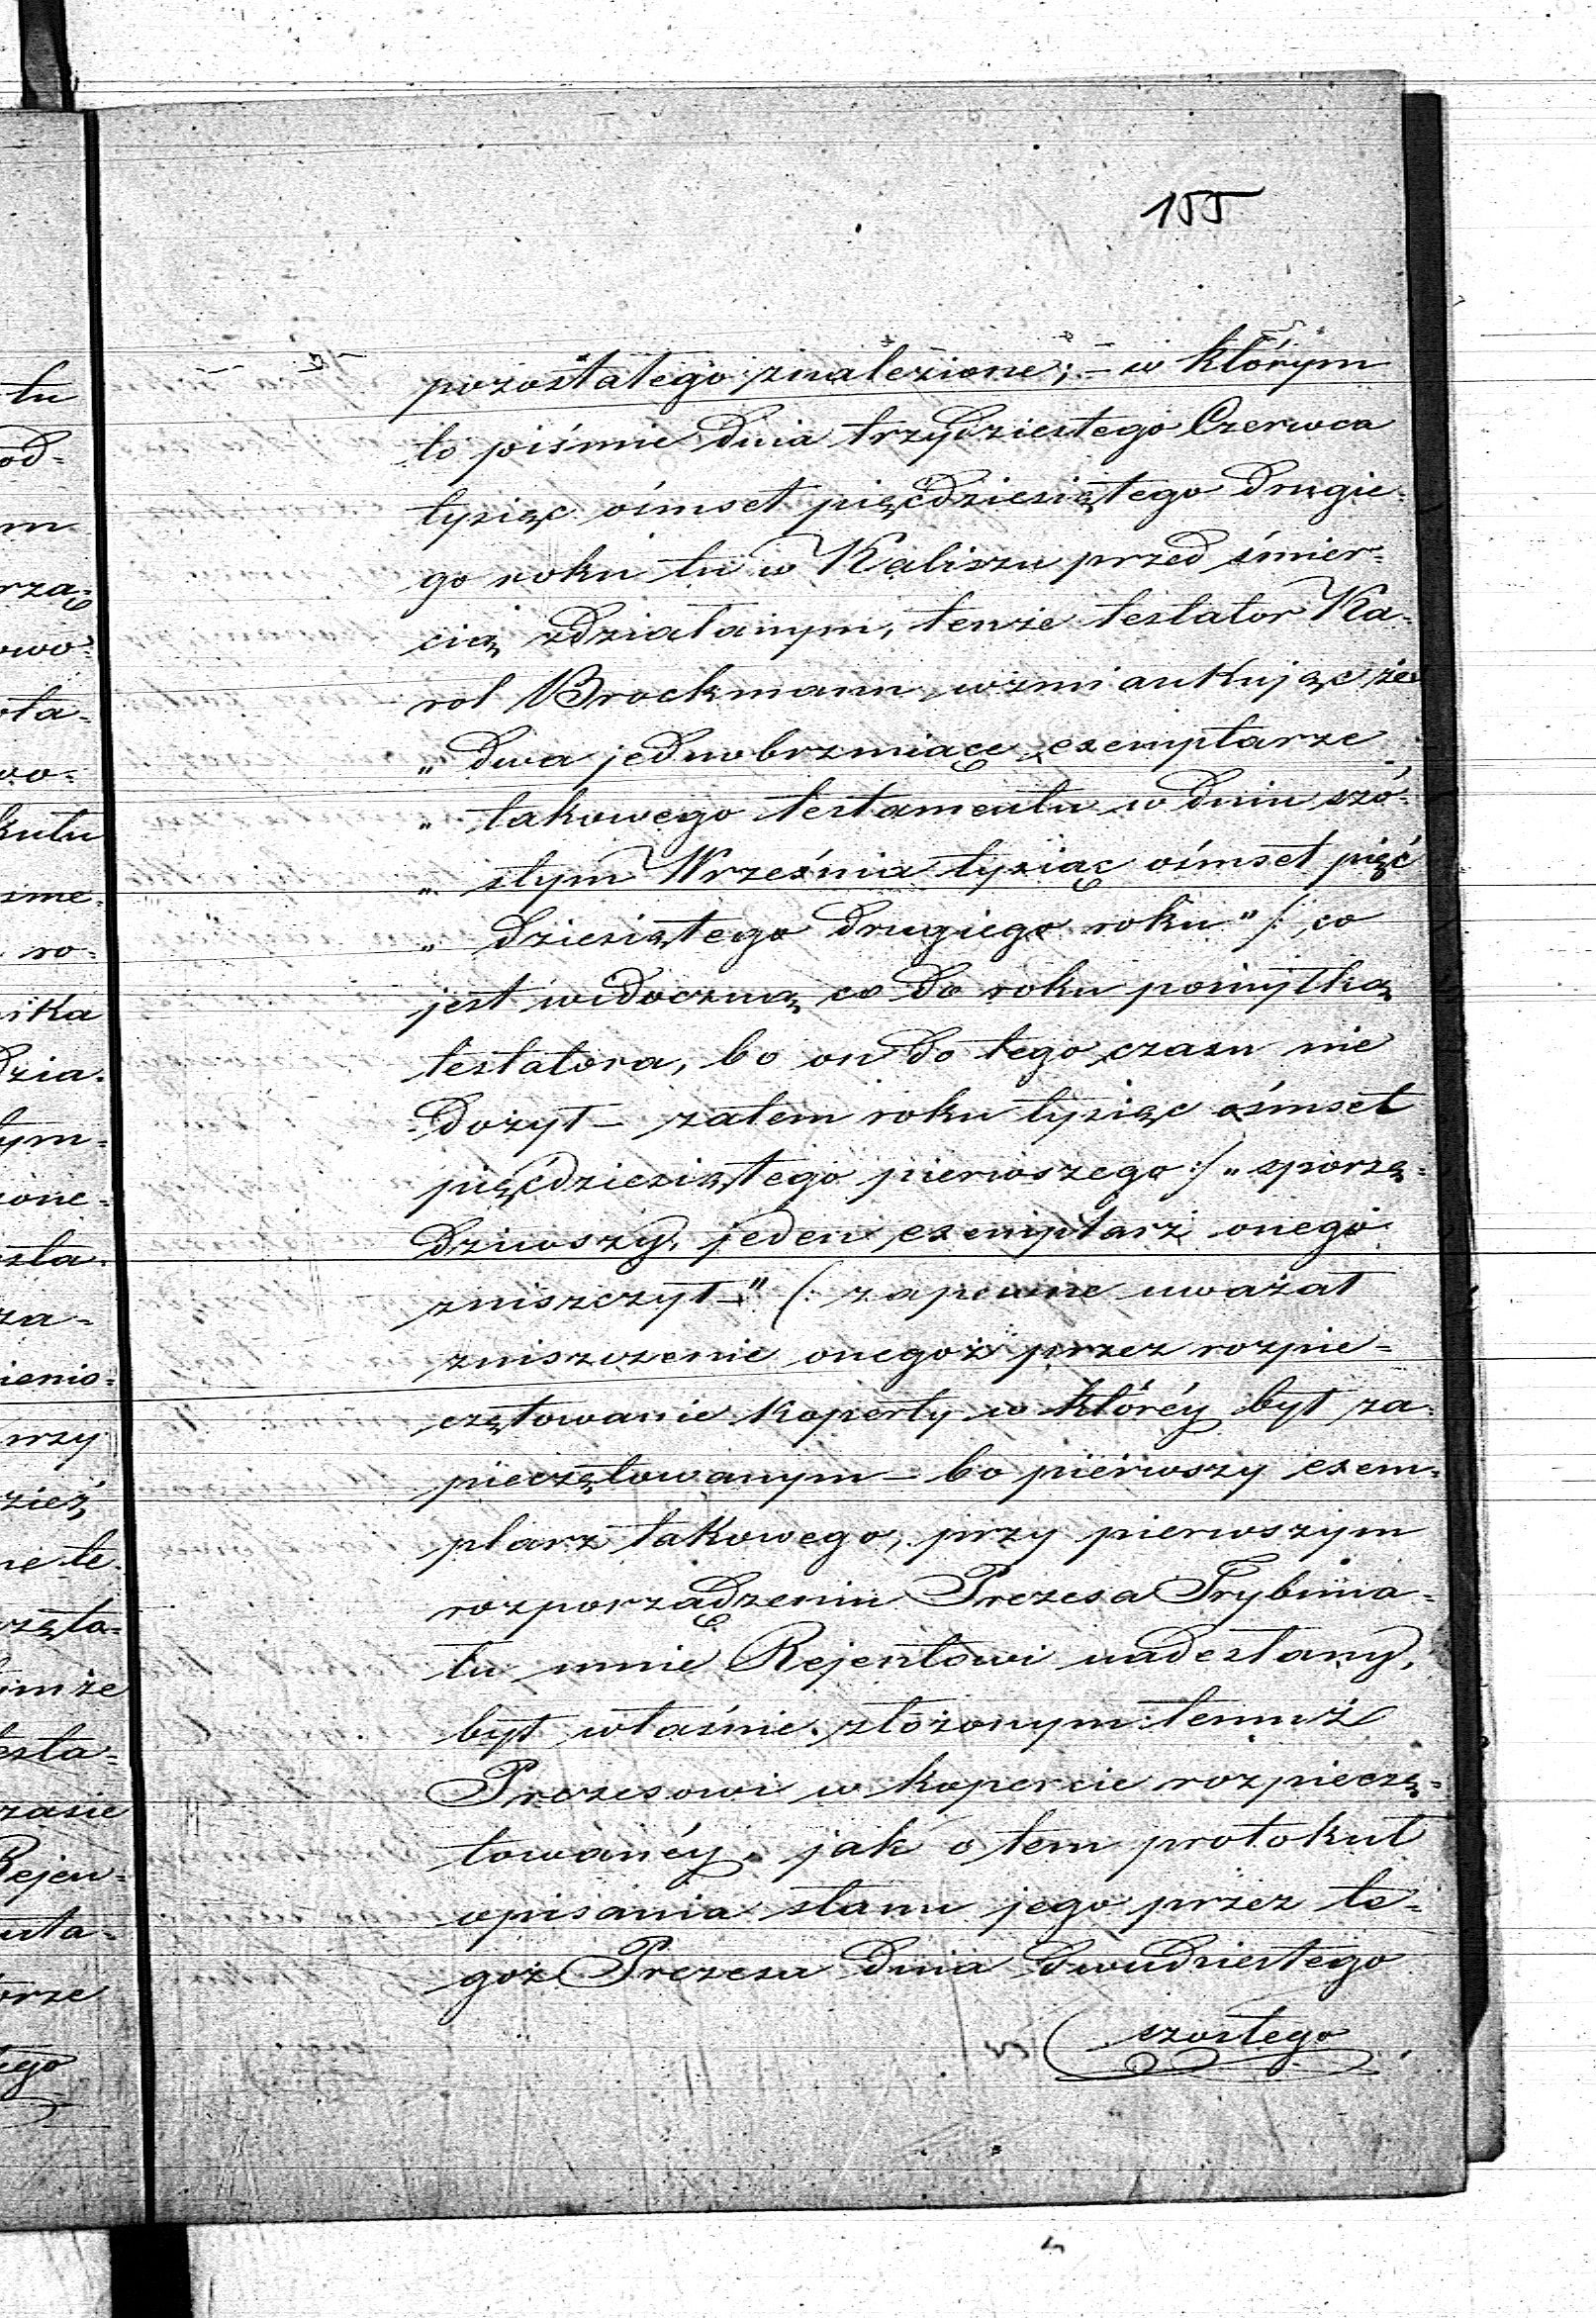 155
pozostałego znalezione; – w którym
to piśmie dnia trzydziestego Czerwca
tysiąc ośmset pięćdziesiątego drugie-
go roku tu w Kaliszu przed śmier-
cią zdziałanym, tenże testator Ka-
rol Brockmann wzmiankując że
„ dwa jednobrzmiące exemplarze
„ takowego testamentu w dniu szó-
„ stym Września tysiąc ośmset pięć
„ dziesiątego drugiego roku" /:, co
jest widoczną co do roku pomyłką
testatora, bo on do tego czasu nie
dożył – zatem roku tysiąc ośmset
pięćdziesiątego pierwszego :/ „ sporzą-
dziwszy, jeden exemplarz onego
zniszczył –" (: zapewne uważał
zniszczenie onegoż przez rozpie-
czętowanie koperty w któréy był za-
pieczętowanym – bo pierwszy exem-
plarz takowego, przy pierwszym
rozporządzeniu Prezesa Trybuna-
tu mnie Rejentowi nadesłany,
był właśnie złożonym temuż
Prezesowi w kopercie rozpieczę-
towanéy, jak o tem protokuł
opisania stanu jego przez te-
goż Prezesa dnia dwudziestego
szóstego
tu
od-
m
rzą-
owo-
ota-
wo-
kułu
sme-
ro-
ika
dzia-
tym-
one-
sta-
za-
ienio-
rzy
zież
ie te-
częto-
imże
esta-
zasie
Rejen-
uta-
orze
ego